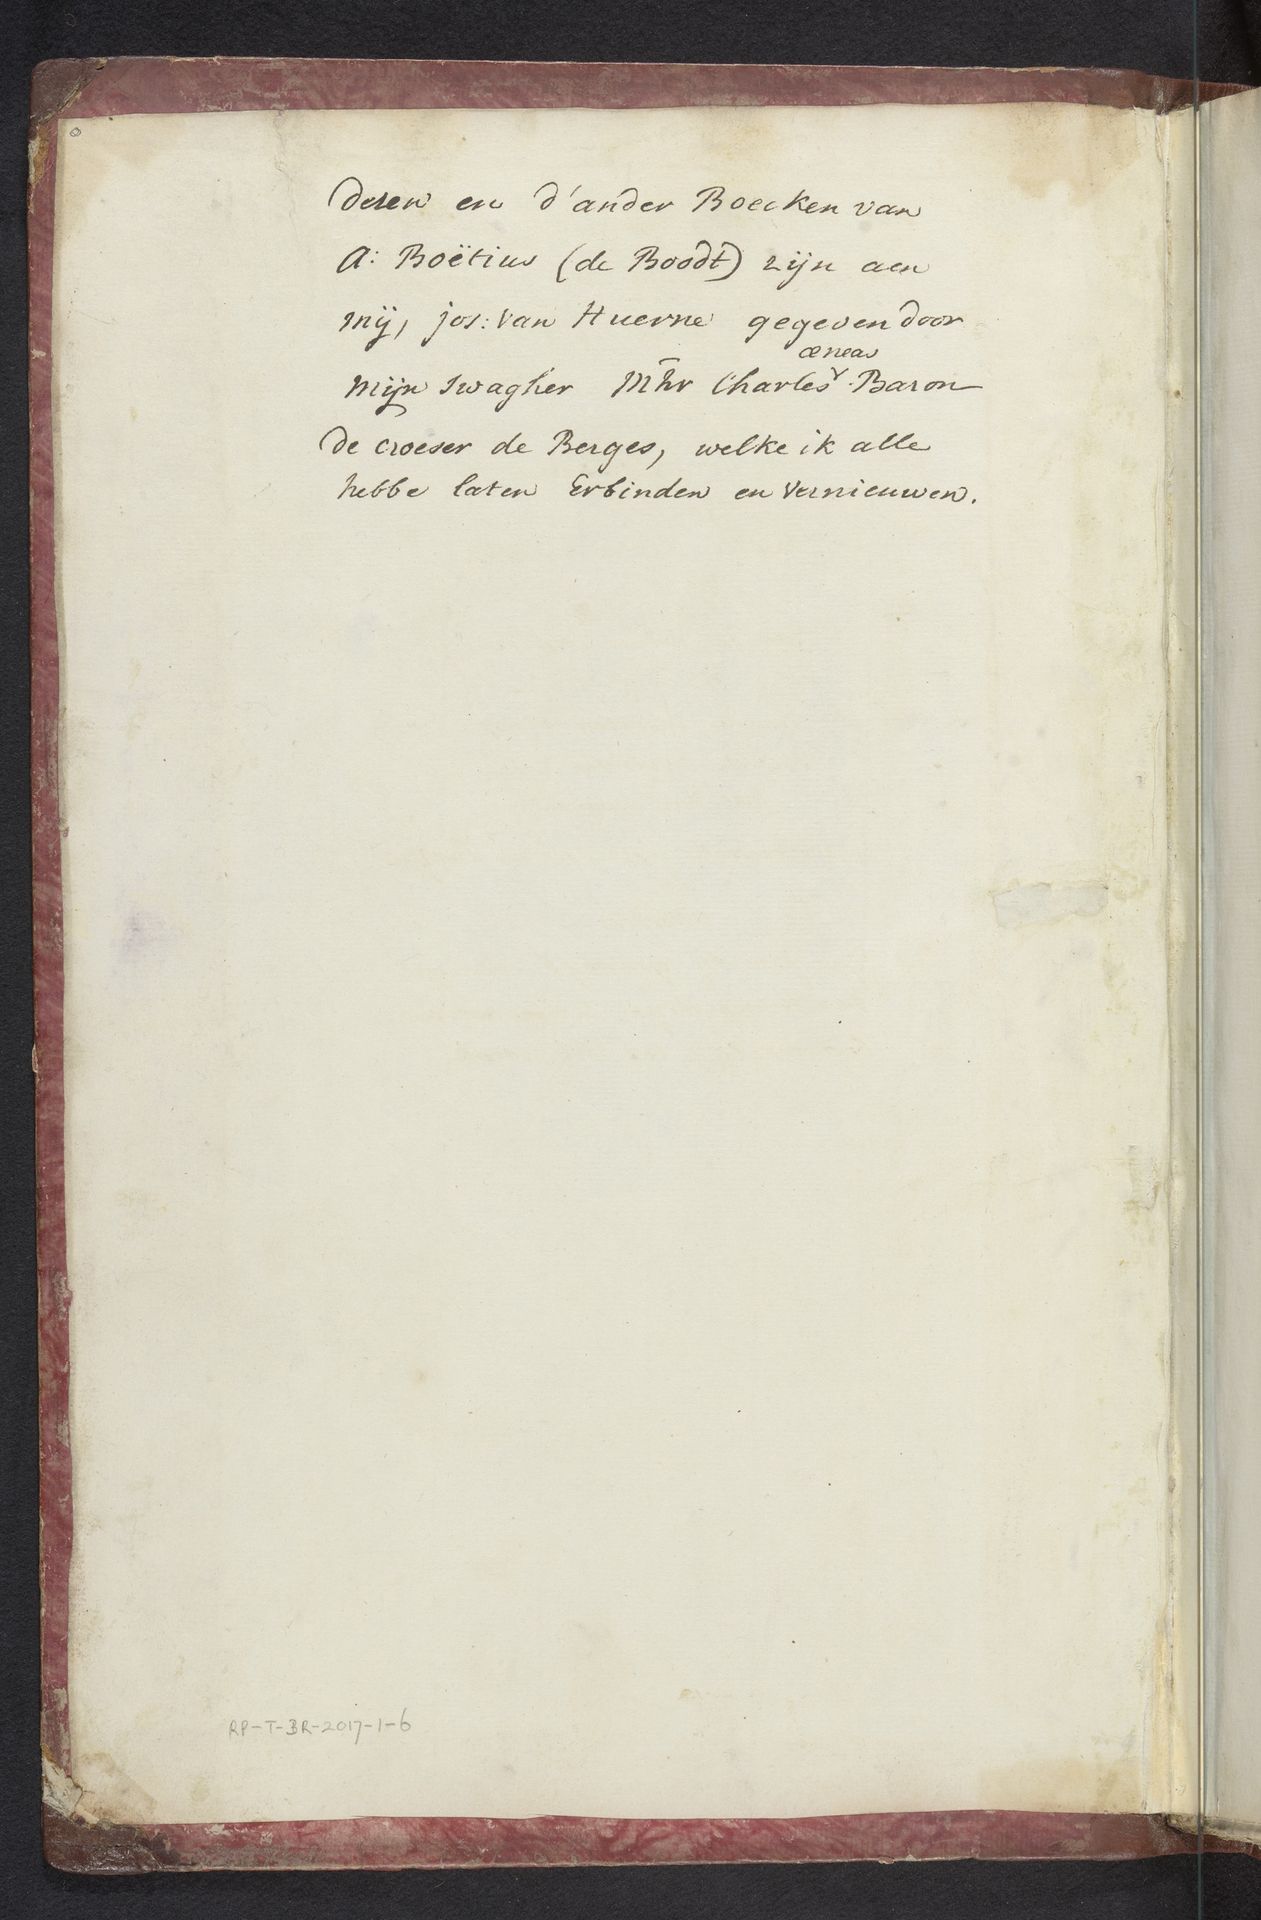 Desen en d'ander Boecken van
A: Boëtius (de Boodt) zijn aen
mij, jos: van Huerne gegeven door
æneas
mijn swagher Mhr Charles Baron
de croeser de Berges, welke ik alle
hebbe laten Erbinden en vernieuwen.
RP-T-BR-2017-1-6